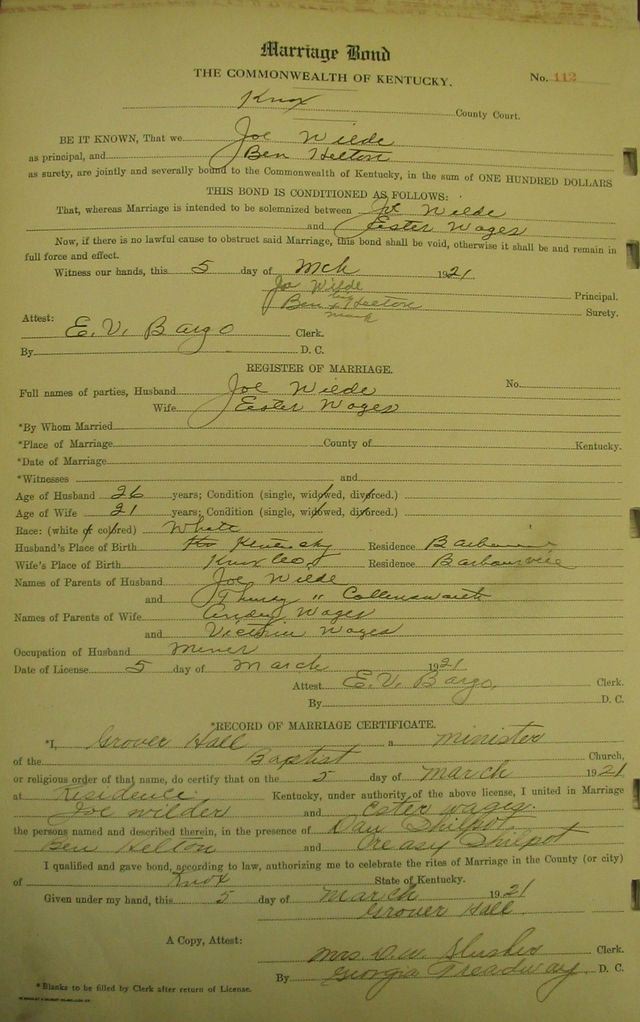 Marriage Bond
THE COMMONWEALTH OF KENTUCKY.
No. 112
Knox County Court.
BE IT KNOWN, That we Joe Wilde
as principal, and Ben Helton
as surety, are jointly and severally bound to the Commonwealth of Kentucky, in the sum of ONE HUNDRED DOLLARS
THIS BOND IS CONDITIONED AS FOLLOWS:
That, whereas Marriage is intended to be solemnized between Joe Wilde
and Ester Wages
Now, if there is no lawful cause to obstruct said Marriage, this bond shall be void, otherwise it shall be and remain in
full force and effect.
Witness our hands, this 5 day of Mch 1921
Jo Wilde Principal.
Ben Helton Surety.
mark
Attest:
E. V. Bargo Clerk.
By D. C.
REGISTER OF MARRIAGE.
Full names of parties, Husband Joe Wilde No.
Wife Ester Wages
*By Whom Married
*Place of Marriage County of Kentucky.
*Date of Marriage
*Witnesses and
Age of Husband 26 years; Condition (single, widowed, divorced.)
Age of Wife 21 years; Condition (single, widowed, divorced.)
Race: (white or colored) White
Husband's Place of Birth Kentucky Residence
Wife's Place of Birth Knox Co. Residence Barbourville
Names of Parents of Husband Joe Wilde
and " Collensworth
Names of Parents of Wife Andy Wages
and Victoria Wages
Occupation of Husband Miner
Date of License 5 day of March 1921
Attest E. V. Bargo, Clerk.
By D. C.
*RECORD OF MARRIAGE CERTIFICATE.
*I, Grover Hall a minister
of the Baptist Church,
or religious order of that name, do certify that on the 5 day of March 1921
at Residence Kentucky, under authority of the above license, I united in Marriage
Joe Wilder and Ester
the persons named and described therein, in the presence of Dan Philpot
Ben Helton and Creasy Philpot
I qualified and gave bond, according to law, authorizing me to celebrate the rites of Marriage in the County (or city)
of Knox State of Kentucky.
Given under my hand, this 5 day of March 1921
Grover Hall
A Copy, Attest:
Mrs. D. W. Slusher Clerk.
By Georgia Treadway D. C.
*Blanks to be filled by Clerk after return of License.